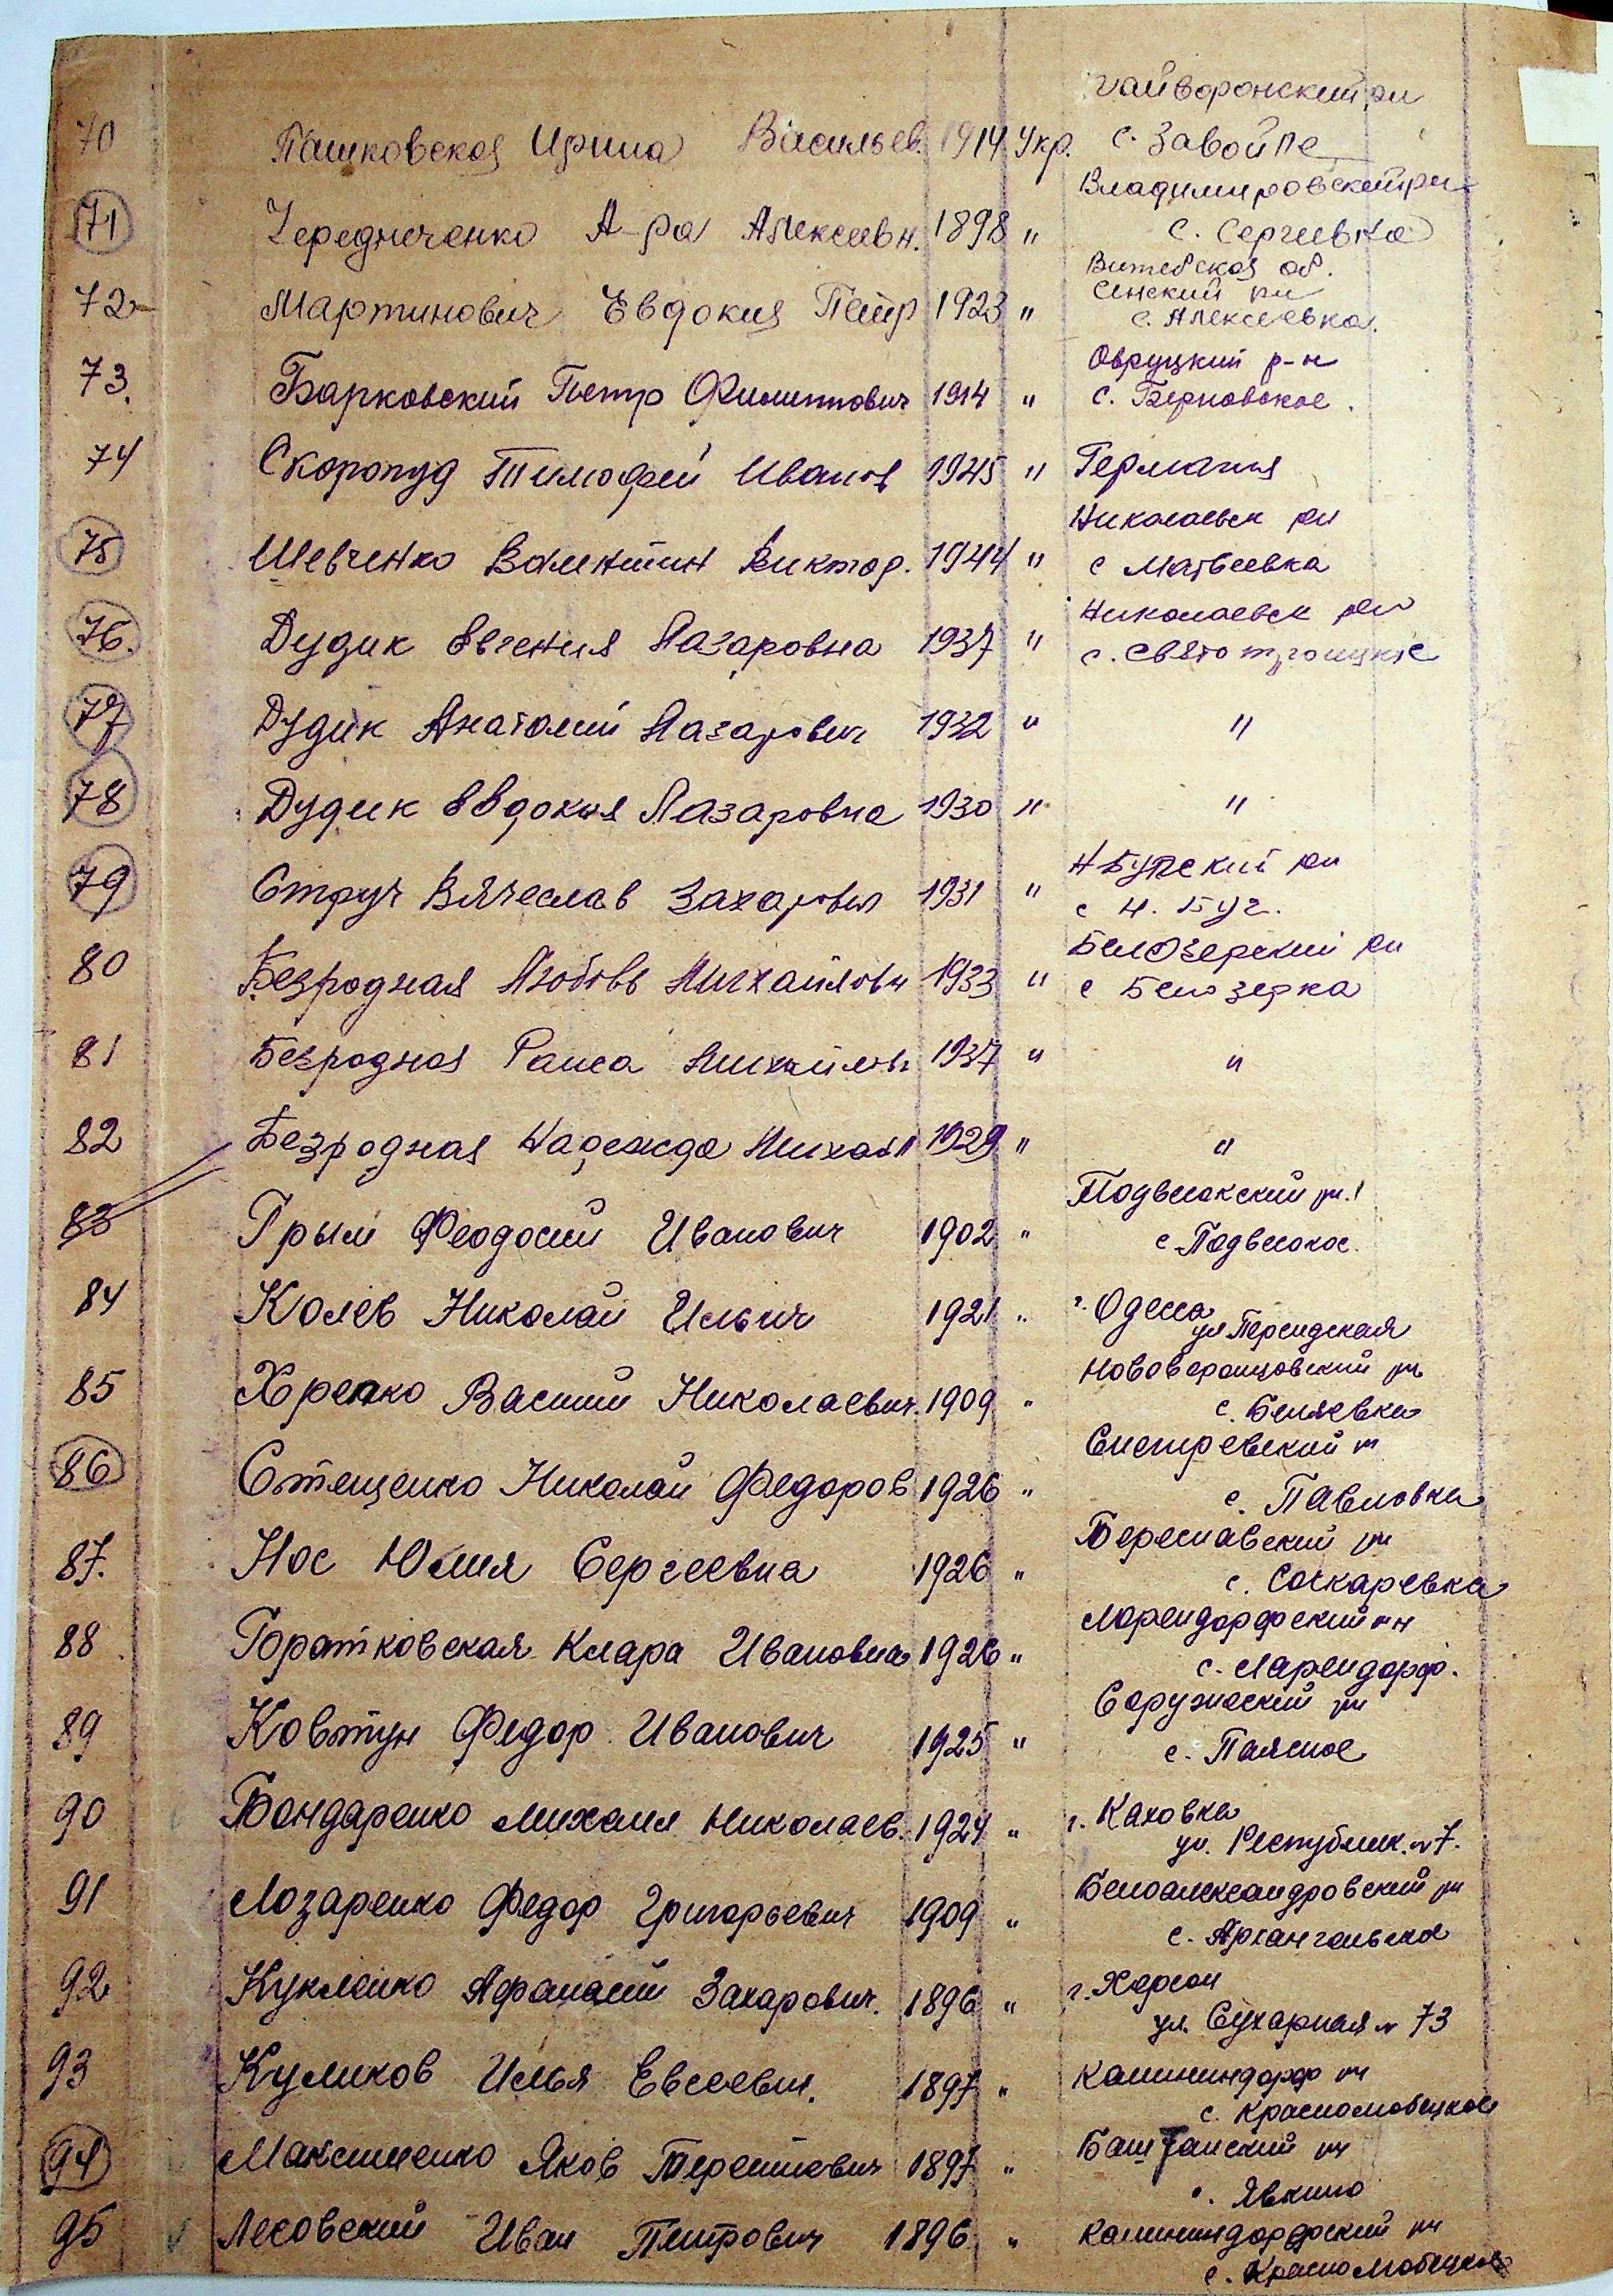 Гайворонский рн
70 Пашковская Ирина Васильев. 1914 Укр. с. Завойле
Владимировский рн
71 Чередниченко А-ра Алексеевн. 1898 " с. Сергиевка
Витебская об.
Сенский рн
72 Мартинович Евдокия Петр 1923 " с. Алексеевка.
Овруцкий р-н
73. Барковский Петр Филиппович 1914 " с. Верповское.
74 Скоропуд Тимофей Иванов 1945 " Германия
Николаевск рн
75 Шевченко Валентин Виктор. 1944 " с Матвеевка
Николаевск рн
76. Дудик Евгения Лазаровна 1937 " с. Святотроицкое
77 Дудик Анатолий Лазарович 1932 " "
78 Дудик Евдокия Лазаровна 1930 " "
Н Бугский рн
79 Струч Вячеслав Захарович 1931 " с Н. Буг.
Белозерский рн
80 Безродная Любовь Михайловн 1933 " с Белозерка
81 Безродная Раиса Михайловн 1937 " "
82 Безродная Надежда Михайл 1929 " "
Подвысокский рн.
83 Грым Феодосий Иванович 1902 " с Подвысокое.
84 Колев Николай Ильич 1921 " г. Одесса
ул Персидская
Нововоронцовский рн
85 Хренко Василий Николаевич. 1909 " с. Беляевка
Снегиревский рн
86 Стеценко Николай Федоров 1926 " с. Павловка
Бериславский рн
87. Нос Юлия Сергеевна 1926 "
88 Горатковская Клара Ивановна 1926 " с. Ларендорф.
89 Ковтун Федор Иванович 1925 "
90 Бондаренко Михаил Николаев. 1924 " г. Каховка
ул. Республик. № 7.
Белоалександровский рн
91 Лозаренко Федор Григорьевич 1909 " с. Архангельское
92 Кукленко Афанасий Захарович. 1896 " г. Херсон
ул. Сухарная № 73
Калининдорф рн
93 Куликов Илья Евсеевич. 1897 " с. Краснолюбецкое
Баштанский рн
94 Максименко Яков Терентиевич 1897 " с. Явкино
95 Лесовский Иван Петрович 1896 " Калининдорфский рн
с. Краснолюбецкое